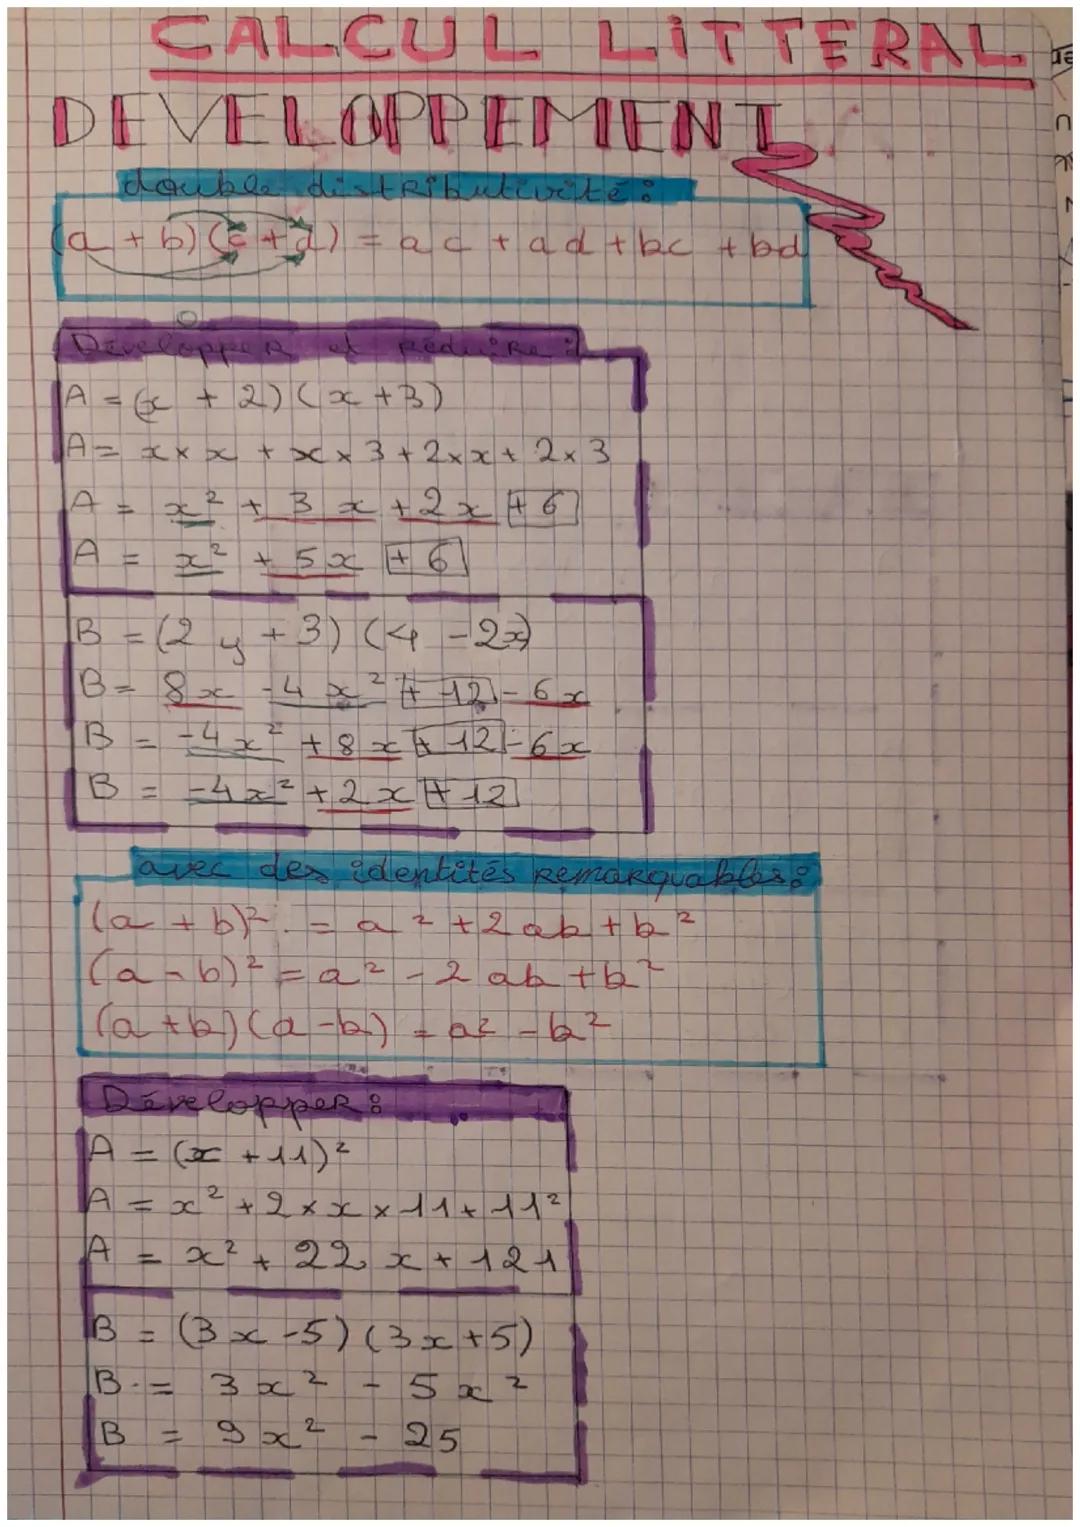 CALCUL LITTERAL
DEVELOPPEMENT
double distributivité :
(a + b) (c + d) = ac + ad + bc + bd
Développer et réduire :
A = (x + 2) (x + 3)
A = x × x + x × 3 + 2 × x + 2 × 3
A = x² + 3x + 2x + 6
A = x² + 5x + 6
B = (2y + 3) (4 - 2x)
B = 8x - 4x² + 12 - 6x
B = -4x² + 8x + 12 - 6x
B = -4x² + 2x + 12
avec des identités remarquables :
(a + b)² = a² + 2ab + b²
(a - b)² = a² - 2ab + b²
(a + b) (a - b) = a² - b²
Développer :
A = (x + 11)²
A = x² + 2 × x × 11 + 11²
A = x² + 22x + 121
B = (3x - 5) (3x + 5)
B = 3x² - 5x²
B = 9x² - 25